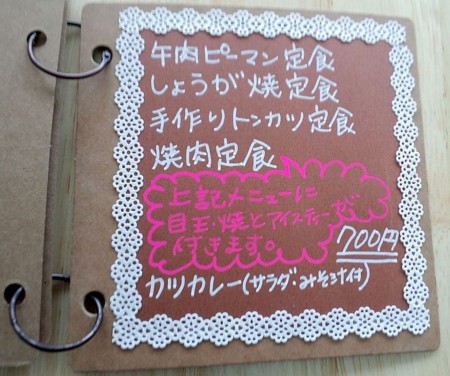 牛肉ピーマン定食
しょうが焼定食
手作りトンカツ定食
焼肉定食
上記メニューに
目玉焼とアイスティーが
付きます。
700円
カツカレー(サラダ・みそ汁付)